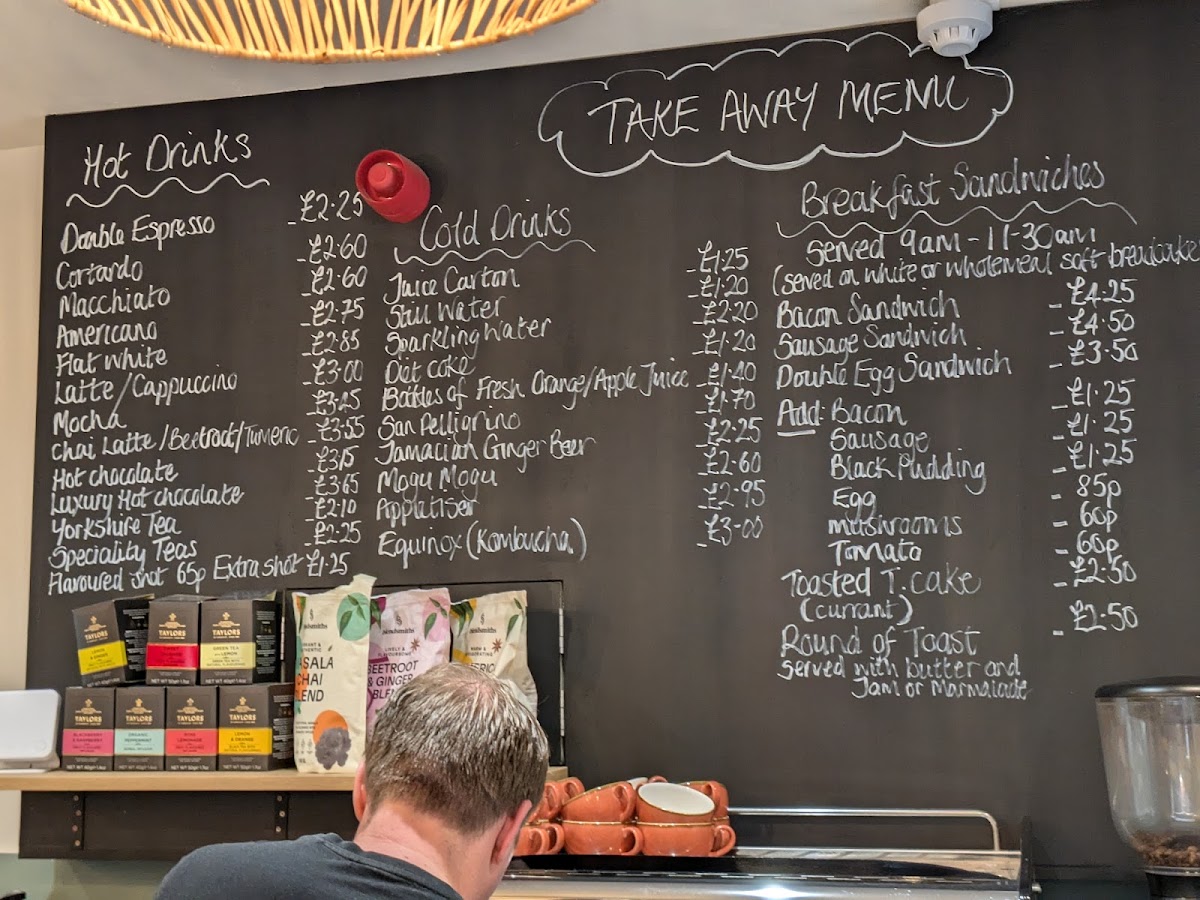 TAKE AWAY MENU
Hot Drinks
Double Espresso - £2.25
Cortardo - £2.60
Macchiato - £2.60
Americano - £2.75
Flat white - £2.85
Latte/Cappuccino - £3.00
Mocha - £3.45
Chai Latte/Beetroot/Tumeric - £3.55
Hot chocolate - £3.15
Luxury Hot chocolate - £3.65
Yorkshire Tea - £2.10
Speciality Teas - £2.25
Flavoured shot 65p Extra shot £1.25
Cold Drinks
Juice Carton - £1.25
Still Water - £1.20
Sparkling Water - £2.20
Diet coke - £1.20
Bottles of Fresh Orange/Apple Juice - £1.40
San Pelligrino - £1.70
Jamacian Ginger Beer - £2.25
Mogu Mogu - £2.60
Appletiser - £2.95
Equinox (Kombucha) - £3.00
Breakfast Sandwiches
Served 9am - 11-30am
(served on white or wholemeal soft breadcake
Bacon Sandwich - £4.25
Sausage Sandwich - £4.50
Double Egg Sandwich - £3.50
Add: Bacon - £1.25
Sausage - £1.25
Black Pudding - £1.25
Egg - 85p
Mushrooms - 60p
Tomato - 60p
Toasted T.cake - £2.50
(currant)
Round of Toast - £2.50
served with butter and
Jam or Marmalade
TAYLORS
TAYLORS
TAYLORS
GREEN TEA
TAYLORS
TAYLORS
TAYLORS
TAYLORS
BLACKBERRY
& RASPBERRY
ORGANIC
PEPPERMINT
ROSE
LEMONADE
LEMON
& ORANGE
MASALA
CHAI
BLEND
BEETROOT
& GINGER
BLEND